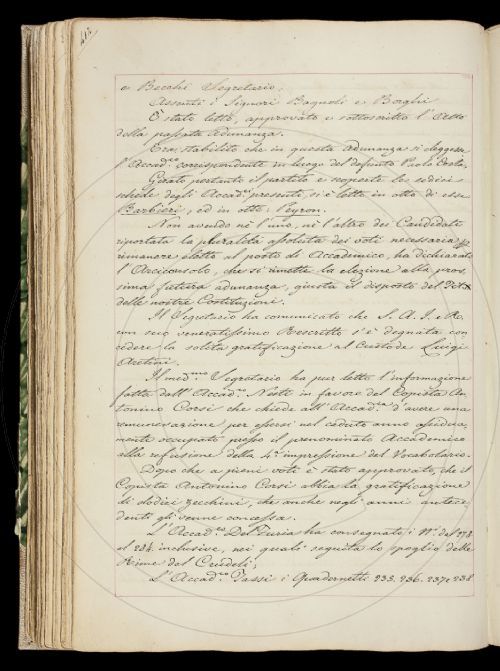 e Becchi Segretario.
Assenti i Signori Bagnoli e Borghi
È stato letto, approvato e sottoscritto l'Atto
della passata adunanza.
Era stabilito che in questa adunanza si eleggesse
l'Accad.co corrispondente in luogo del defunto Paolo Costa.
Girato pertanto il partito e scoperte le sedici
schede degli Accad.ci presenti, si è letto in otto di esse
Barbieri, ed in otto, Peyron.
Non avendo nè l'uno, nè l'altro dei Candidati
riportata la pluralità assoluta dei voti necessaria a
rimanere eletto al posto di Accademico, ha dichiarato
l'Arciconsolo, che si rimette la elezione alla pros-
sima futura adunanza, giusta il disposto del
delle nostre Costituzioni.
Il Segretario ha comunicato che S. A. I. e R.
con suo veneratissimo Rescritto s'è degnata con
cedere la solita gratificazione al Custode Luigi
Aretini.
Il med.mo Segretario ha pur letto l'informazione
fatta dall'Accad.co Nesti in favore del Copista An-
tonino Corsi che chiede all'Accad.ia d'avere una
remunerazione per essersi nel caduto anno assidua-
mente occupato presso il prenominato Accademico
alla refusione della 4.a impressione del Vocabolario.
Dopo che a pieni voti è stato approvato, che il
Copista Antonino Corsi abbia la gratificazione
di dodici zecchini, che anche negli anni antece-
denti gli venne concessa.
L'Accad.co Del Furia ha consegnato i N.i del 278
al 284 inclusive, nei quali seguita lo spoglio delle
Rime del Crudeli;
L'Accad.co Tassi i Quadernetti 235. 236. 237 e 238